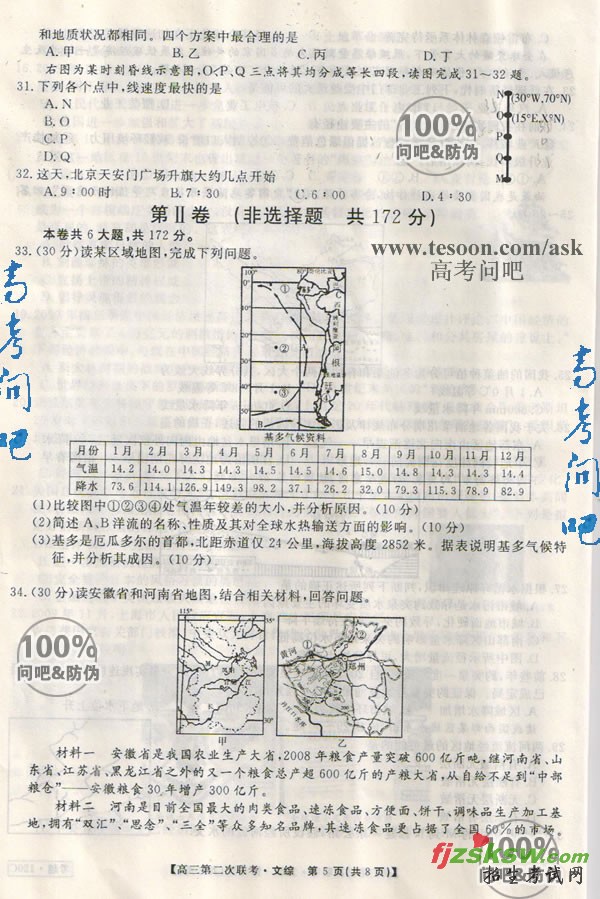 和地质状况都相同。四个方案中最合理的是
A.甲 B.乙 C.丙 D.丁
右图为某时刻昏线示意图,O、P、Q三点将其均分成等长四段,读图完成31～32题。
31.下列各个点中,线速度最快的是
A.N
B.O
C.P
D.Q
N (30°W,70°N)
O (15°E,X°N)
P
Q
M
32.这天,北京天安门广场升旗大约几点开始
A.9:00时 B.7:30 C.6:00 D.4:30
100%
问吧&防伪
第Ⅱ卷 (非选择题 共172分)
本卷共6大题,共172分。
www.tesoon.com/ask
高考问吧
33.(30分)读某区域地图,完成下列问题。
100° 80°
0°
10°
20°
30°
40°
50°
①
②
③
A
B
基多气候资料
月份 1月 2月 3月 4月 5月 6月 7月 8月 9月 10月 11月 12月
气温 14.2 14.0 14.3 14.3 14.5 14.5 14.6 15.0 14.8 14.3 14.3 14.4
降水 73.6 114.1 126.9 149.3 98.2 37.1 26.2 32.0 79.9 115.3 78.9 82.9
(1)比较图中①②③④处气温年较差的大小,并分析原因。(10分)
(2)简述A、B洋流的名称、性质及其对全球水热输送方面的影响。(10分)
(3)基多是厄瓜多尔的首都,北距赤道仅24公里,海拔高度2852米。据表说明基多气候特
征,并分析其成因。(10分)
高考问吧
高考问吧
34.(30分)读安徽省和河南省地图,结合相关材料,回答问题。
115°
35°
30°
黄河
郑州
甲 乙
100%
问吧&防伪
100%
问吧&防伪
材料一 安徽省是我国农业生产大省,2008年粮食产量突破600亿斤吨,继河南省、山
东省、江苏省、黑龙江省之外的又一个粮食总产超600亿斤的产粮大省,从自给不足到“中部
粮仓”——安徽粮食30年增产300亿斤。
材料二 河南是目前全国最大的肉类食品、速冻食品、方便面、饼干、调味品生产加工基
地,拥有“双汇”、“思念”、“三全”等众多知名品牌,其速冻食品更占据了全国60%的市场。
【高三第二次联考·文综 第5页(共8页)】
fjzsksw.com
招生考试网